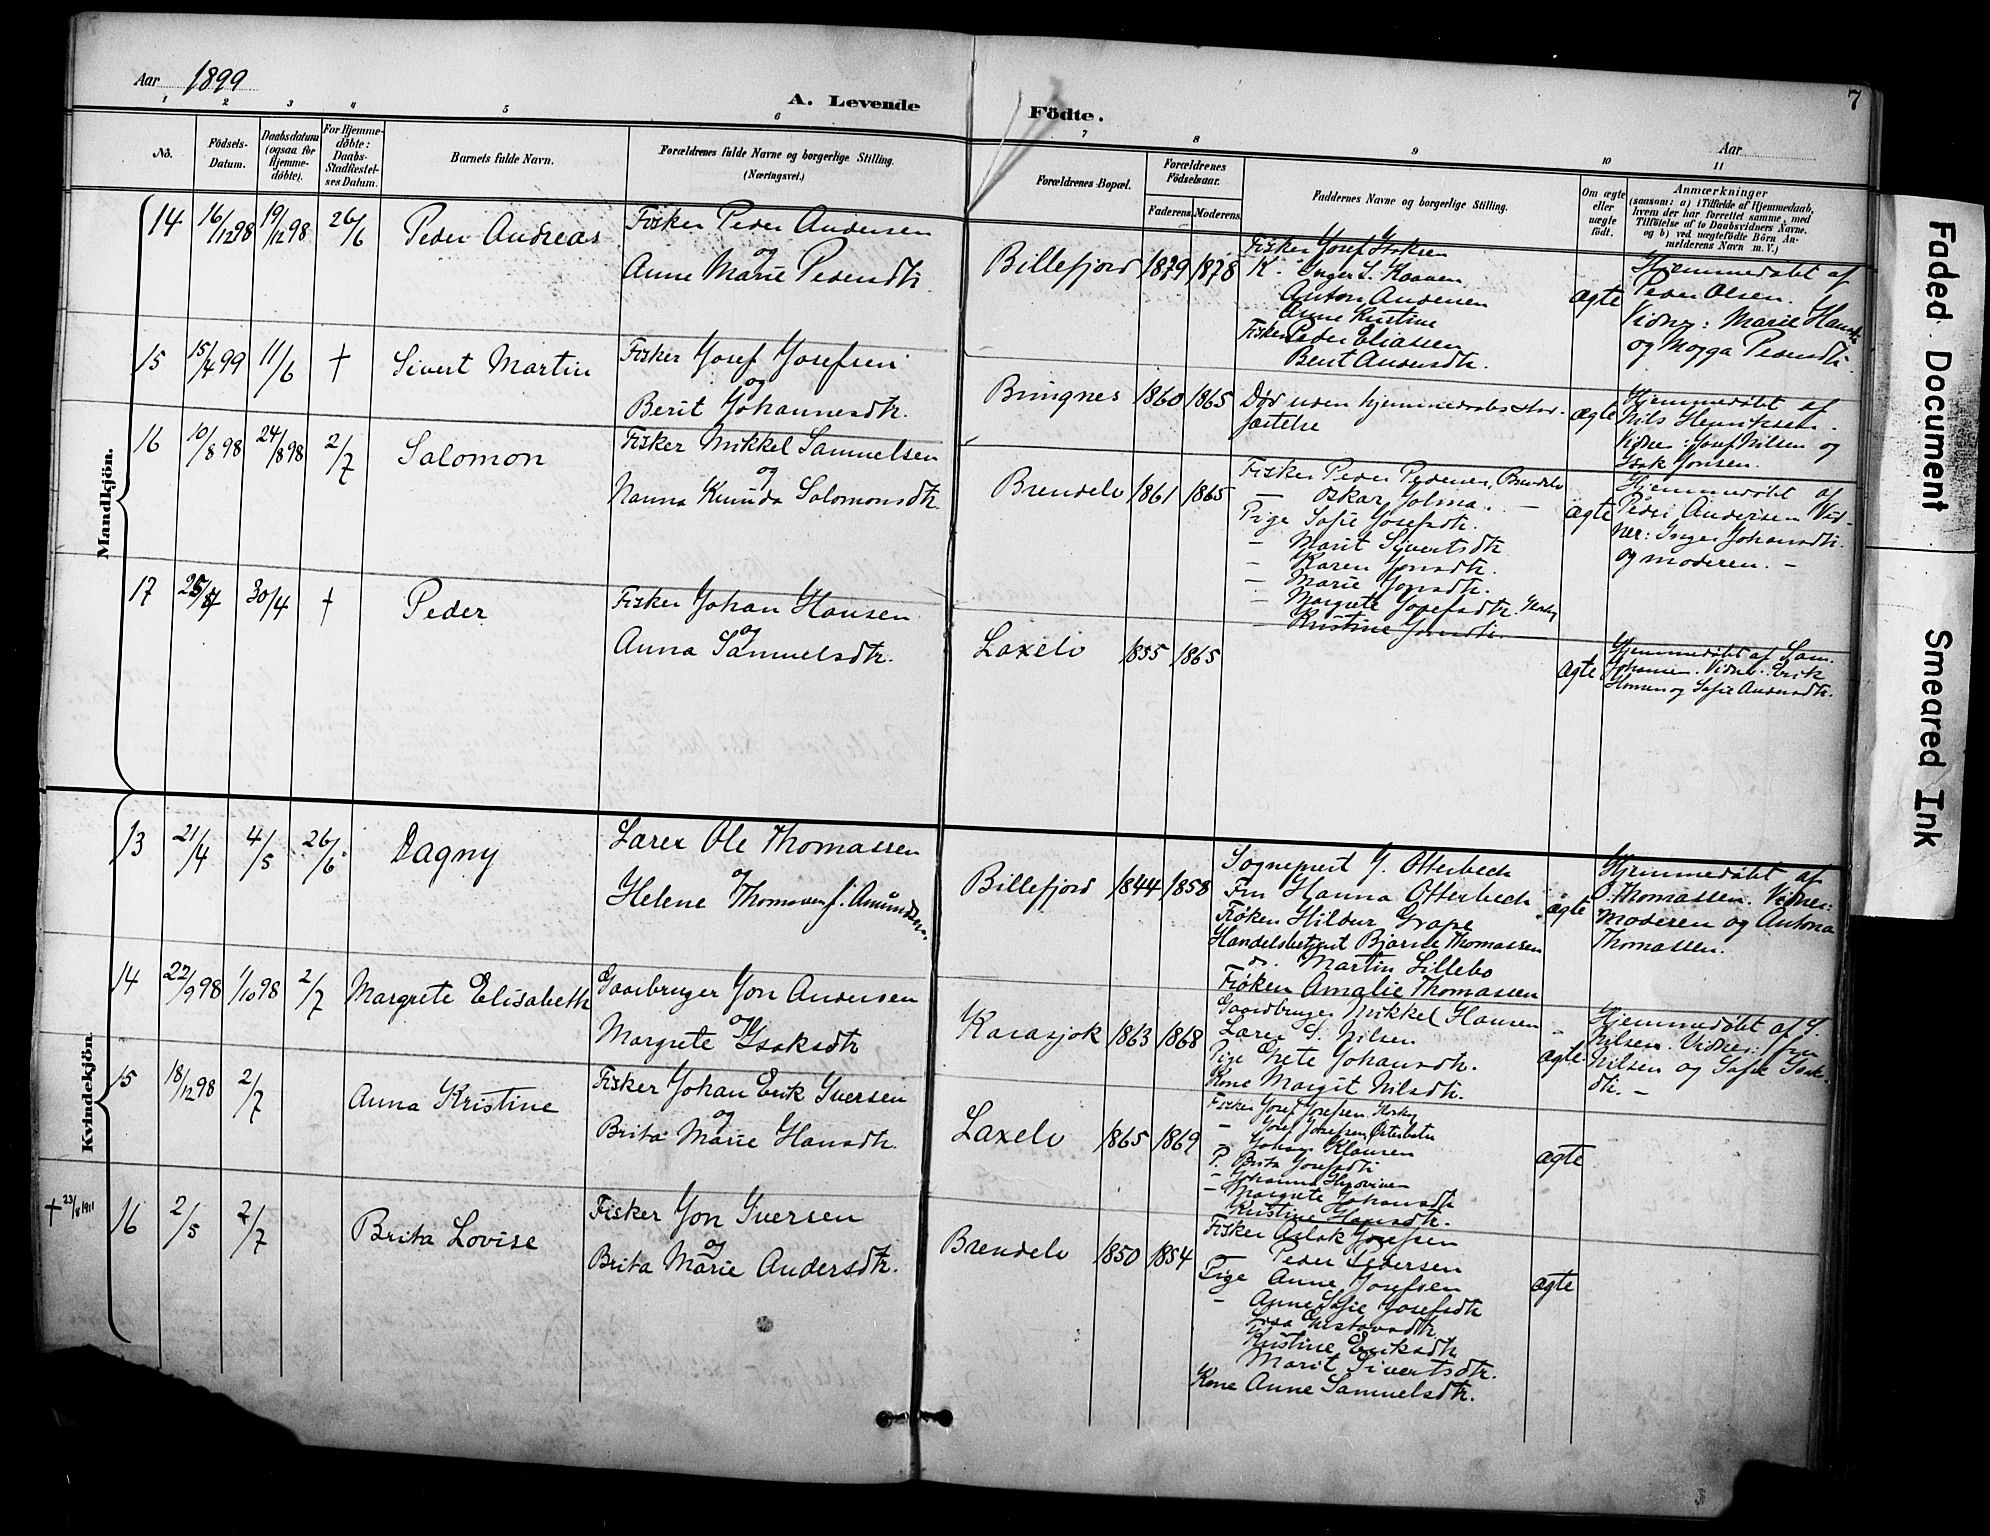 Aar 1899
A. Levende
Födte.
7
Aar
1 2 3 4 5 6 7 8 9 10 11
No.
Födsels-Datum.
Daabsdatum (ogsaa for Hjemme-døbte).
For Hjemme-døbte: Daabs-Stadfæstel-ses Datum.
Barnets fulde Navn.
Forældrenes fulde Navne og borgerlige Stilling.
(Næringsvei.)
Forældrenes Bopæl.
Forældrenes Födselsaar.
Faderens. Moderens.
Faddernes Navne og borgerlige Stilling.
Om ægte eller uægte födt.
Anmærkninger
(saasom: a) i Tilfælde af Hjemmedaab,
hvem der har forrettet samme, med
Tilföielse af to Daabsvidners Navne,
og b) ved uægtefödte Börn An-
melderens Navn m. V.)
Mandkjön.
14 16/12 98 19/12 98 26/6 Peder Andreas
Fisker Peder Andersen
og
Anne Marie Pedersdtr.
Billefjord 1879 1878
Fisker Josef Isaksen
K. Inger S. Kaaven
Anton Andersen
Anne Kristine
Fisker Peder Eliassen
Berit Andersdtr.
ægte
Hjemmedøbt af
Peder Olsen.
Vidner: Marie Hansdtr
og Mogga Pedersdtr.
15 15/4 99 11/6 † Sivert Martin
Fisker Josef Josefsen
og
Berit Johannesdtr.
Bringnes 1860 1865
Død uden hjemmedaabs stad-
fæstelse
ægte
Hjemmedøbt af
Nils Henriksen.
Vidner: Josef Nilsen og
Isak Jonsen.
16 10/8 98 24/8 98 2/7 Salomon
Fisker Mikkel Samuelsen
og
Nanna Kunida Salomonsdtr.
Brendelv 1861 1865
Fisker Peder Pedersen, Brendelv
— Oskar Jolma. —
Pige Sofie Josefsdtr.
— Marit Sivertsdtr
— Karen Jonsdtr.
— Marie Jonsdtr.
— Margrete Josefsdtr.
— Kristine Jonsdtr.
ægte
Hjemmedøbt af
Peder Andersen Vid-
ner: Inger Johansdtr.
og moderen. —
17 30/4 † Peder
Fisker Johan Hansen
og
Anna Samuelsdtr.
Laxelv 1855 1865
ægte
Hjemmedøbt af Sam.
Johansen. Vidner: Erik
Hansen og Sofie Andersdtr.
Kvindekjön.
13 21/4 4/5 26/6 Dagny
Lærer Ole Thomassen
og
Helene Thomassen f. Amundsen.
Billefjord 1844 1858
Sogneprest J. Otterbech
Fru Hanna Otterbech
Frøken Hildur Grape
Handelsbetjent Bjarne Thomassen
do. Martin Lillebo
Frøken Amalie Thomassen
ægte
Hjemmedøbt af
O. Thomassen. Vidner:
Moderen og Antona
Thomassen.
14 22/9 98 1/10 98 2/7 Margrete Elisabeth
Gaardbruger Jon Andersen
og
Margrete Isaksdtr
Karasjok 1863 1868
Gaardbruger Mikkel Hansen
Lærer S. Nilsen
Pige Grete Johansdtr.
Kone Margit Nilsdtr.
ægte
Hjemmedøbt af S.
Nilsen. Vidner: fru
Nilsen og Sofie Isaks-
dtr. —
15 18/12 98 2/7 Anna Kristine
Fisker Johan Erik Iversen
og
Brita Marie Hansdtr.
Laxelv 1865 1869
Fisker Josef Josefsen
— Josef Josefsen, Østerbotn
— Johan Klausen
P. Brita Josefsdtr
— Johanna
— Margrete Johansdtr
Kristine Hansdtr.
ægte
† 23/8 1911
16 2/5 2/7 Brita Lovise
Fisker Jon Iversen
og
Brita Marie Andersdtr.
Brendelv 1850 1854
Fisker Aslak Josefsen
Peder Pedersen
Pige Anne Josefsen
— Anne Sofie Josefsdtr
Lisa Gustavsdtr
Kristine Eriksdtr
Marit Sivertsdtr.
Kone Anne Samuelsdtr.
ægte
Faded Document
Smeared Ink